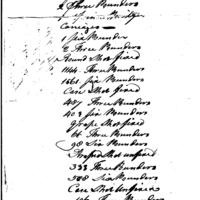 2 Three Pounders
Carriages —
1 Six Pounder
2 Three Pounders
Round Shot fixed
1164 Three Pounders
1361 Six Pounders
Case Shot fixed
407 Three Pounders
403 Six Pounders
Grape Shot fixed
66 Three Pounders
98 Six Pounders
Shot unfixed
333 Three Pounders
388 Six Pounders
Case Shot Unfixed
Three Pounders